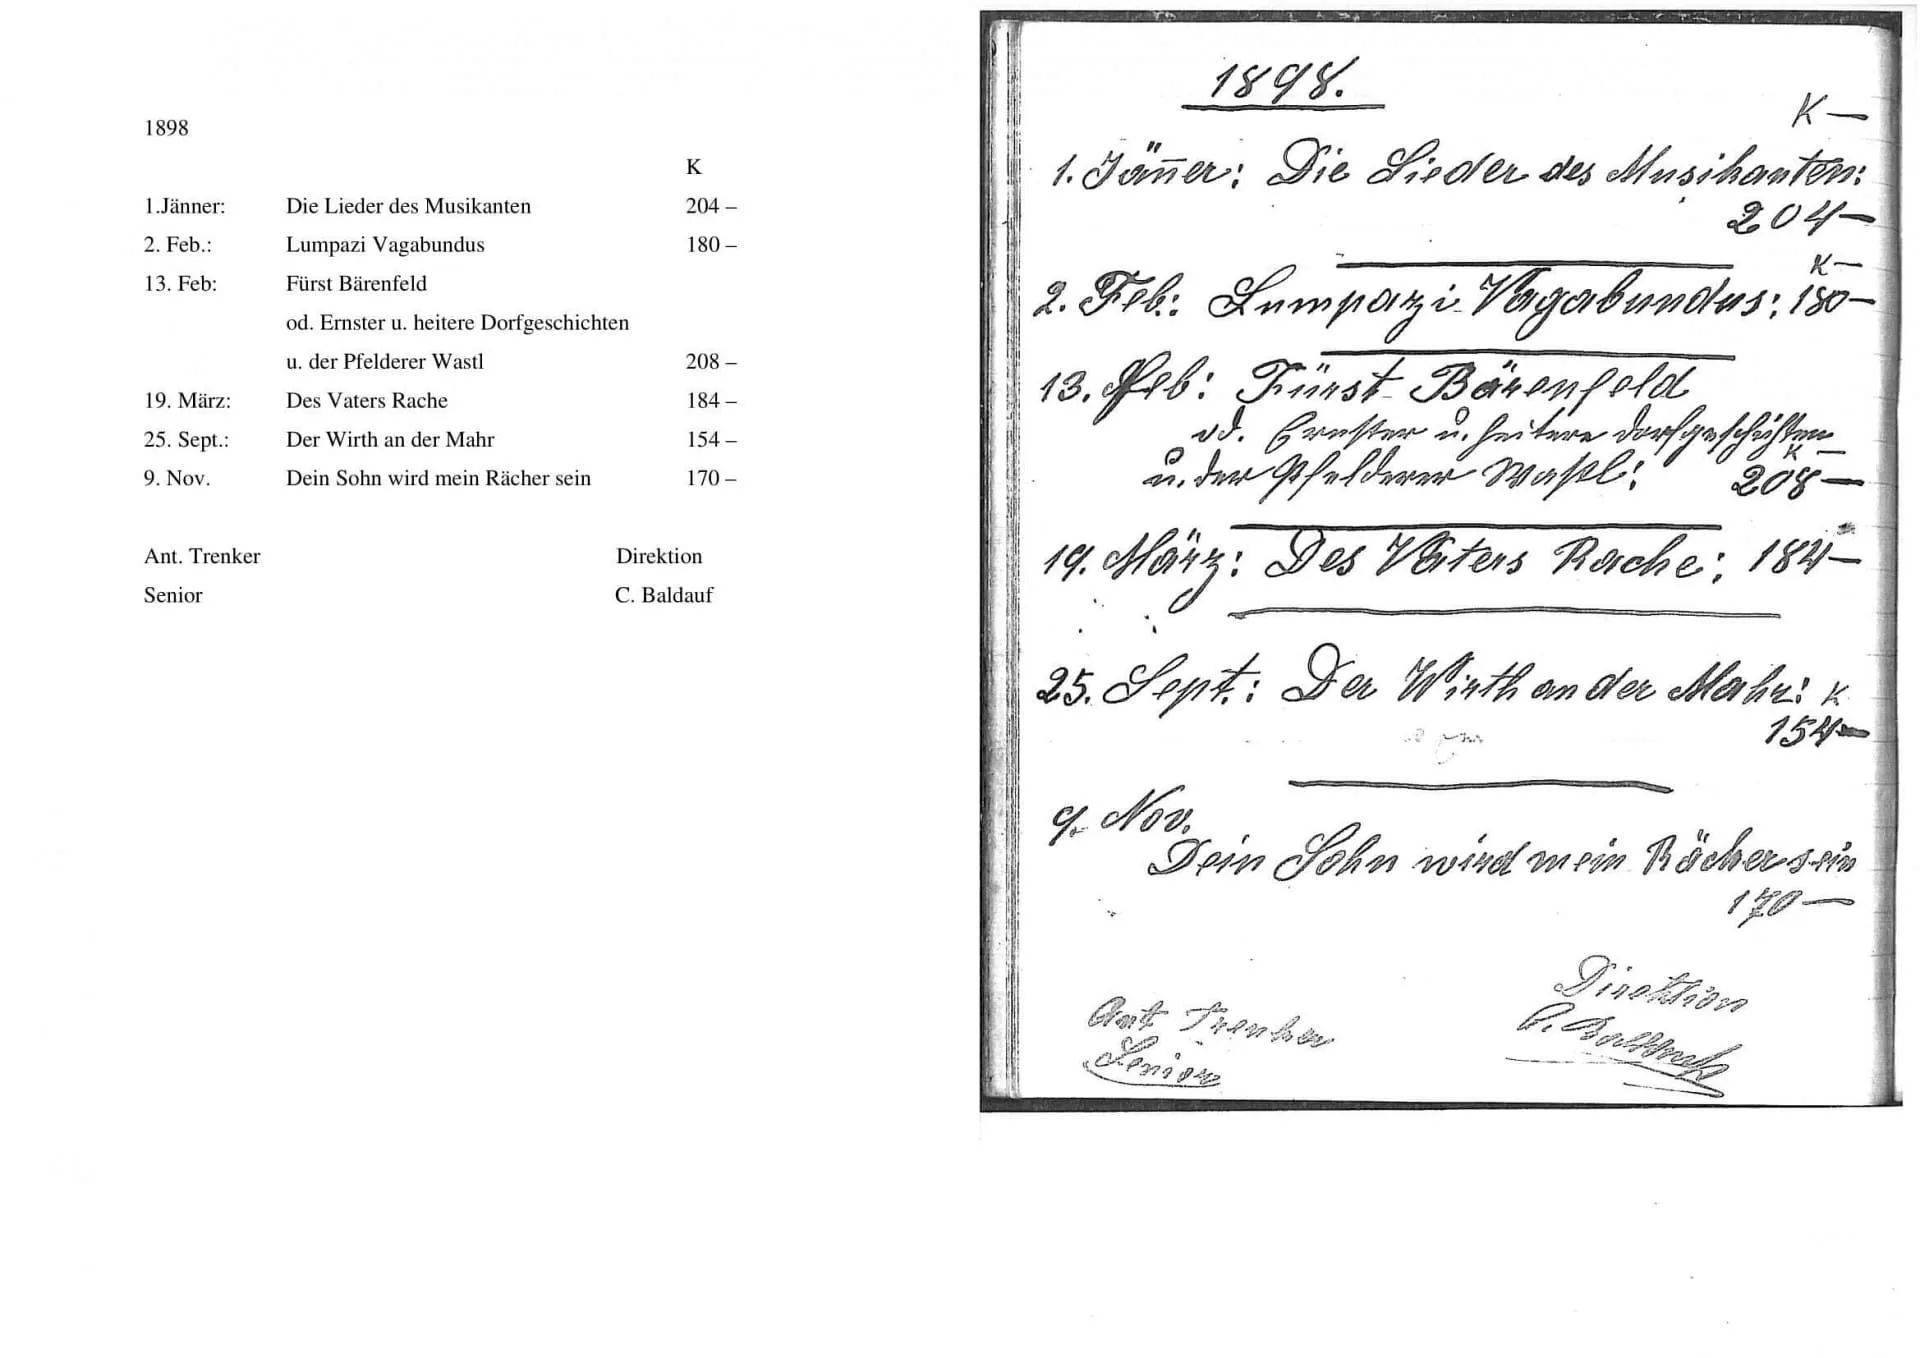 1898
K
1.Jänner: Die Lieder des Musikanten 204 –
2. Feb.: Lumpazi Vagabundus 180 –
13. Feb: Fürst Bärenfeld
od. Ernster u. heitere Dorfgeschichten
u. der Pfelderer Wastl 208 –
19. März: Des Vaters Rache 184 –
25. Sept.: Der Wirth an der Mahr 154 –
9. Nov. Dein Sohn wird mein Rächer sein 170 –
Ant. Trenker Direktion
Senior C. Baldauf
1898.
K —
1. Jän̄er: Die Lieder des Musikanten:
204 —
K —
2. Feb.: Lumpazi Vagabundus: 180 —
13. Feb: Fürst Bärenfeld
od. Ernster u. heitere Dorfgeschichten
K —
u. der Pfelderer Wastl: 208 —
19. März: Des Vaters Rache: 184 —
25. Sept.: Der Wirth an der Mahr: K
154 —
9. Nov.
Dein Sohn wird mein Rächer sein
170 —
Direktion
Ant Trenker C. Baldauf
Senior